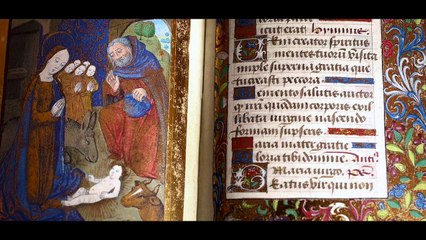 Veni creator spiritus
mentes tuorū visita
imple superna gratia que
tu creasti pectora
Memento salutis auctor
q nr̄i quondam corporis ex il
libata virgine nascendo
formam sūpseris
Maria mater gratie
Gloria tibi domine. Antiᵃ.
Maria virgo. ps
Beatus vir qui non